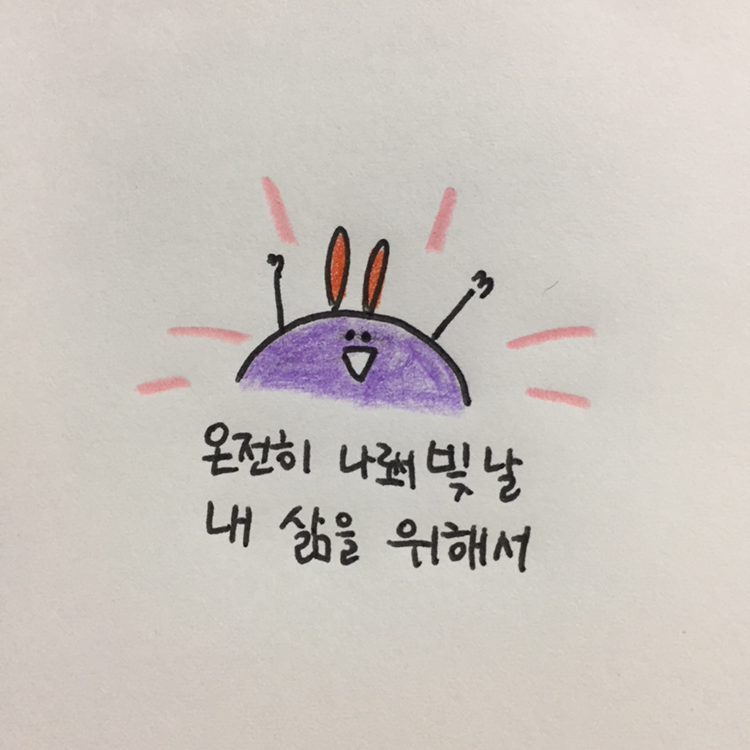 온전히 나로써 빛날
내 삶을 위해서